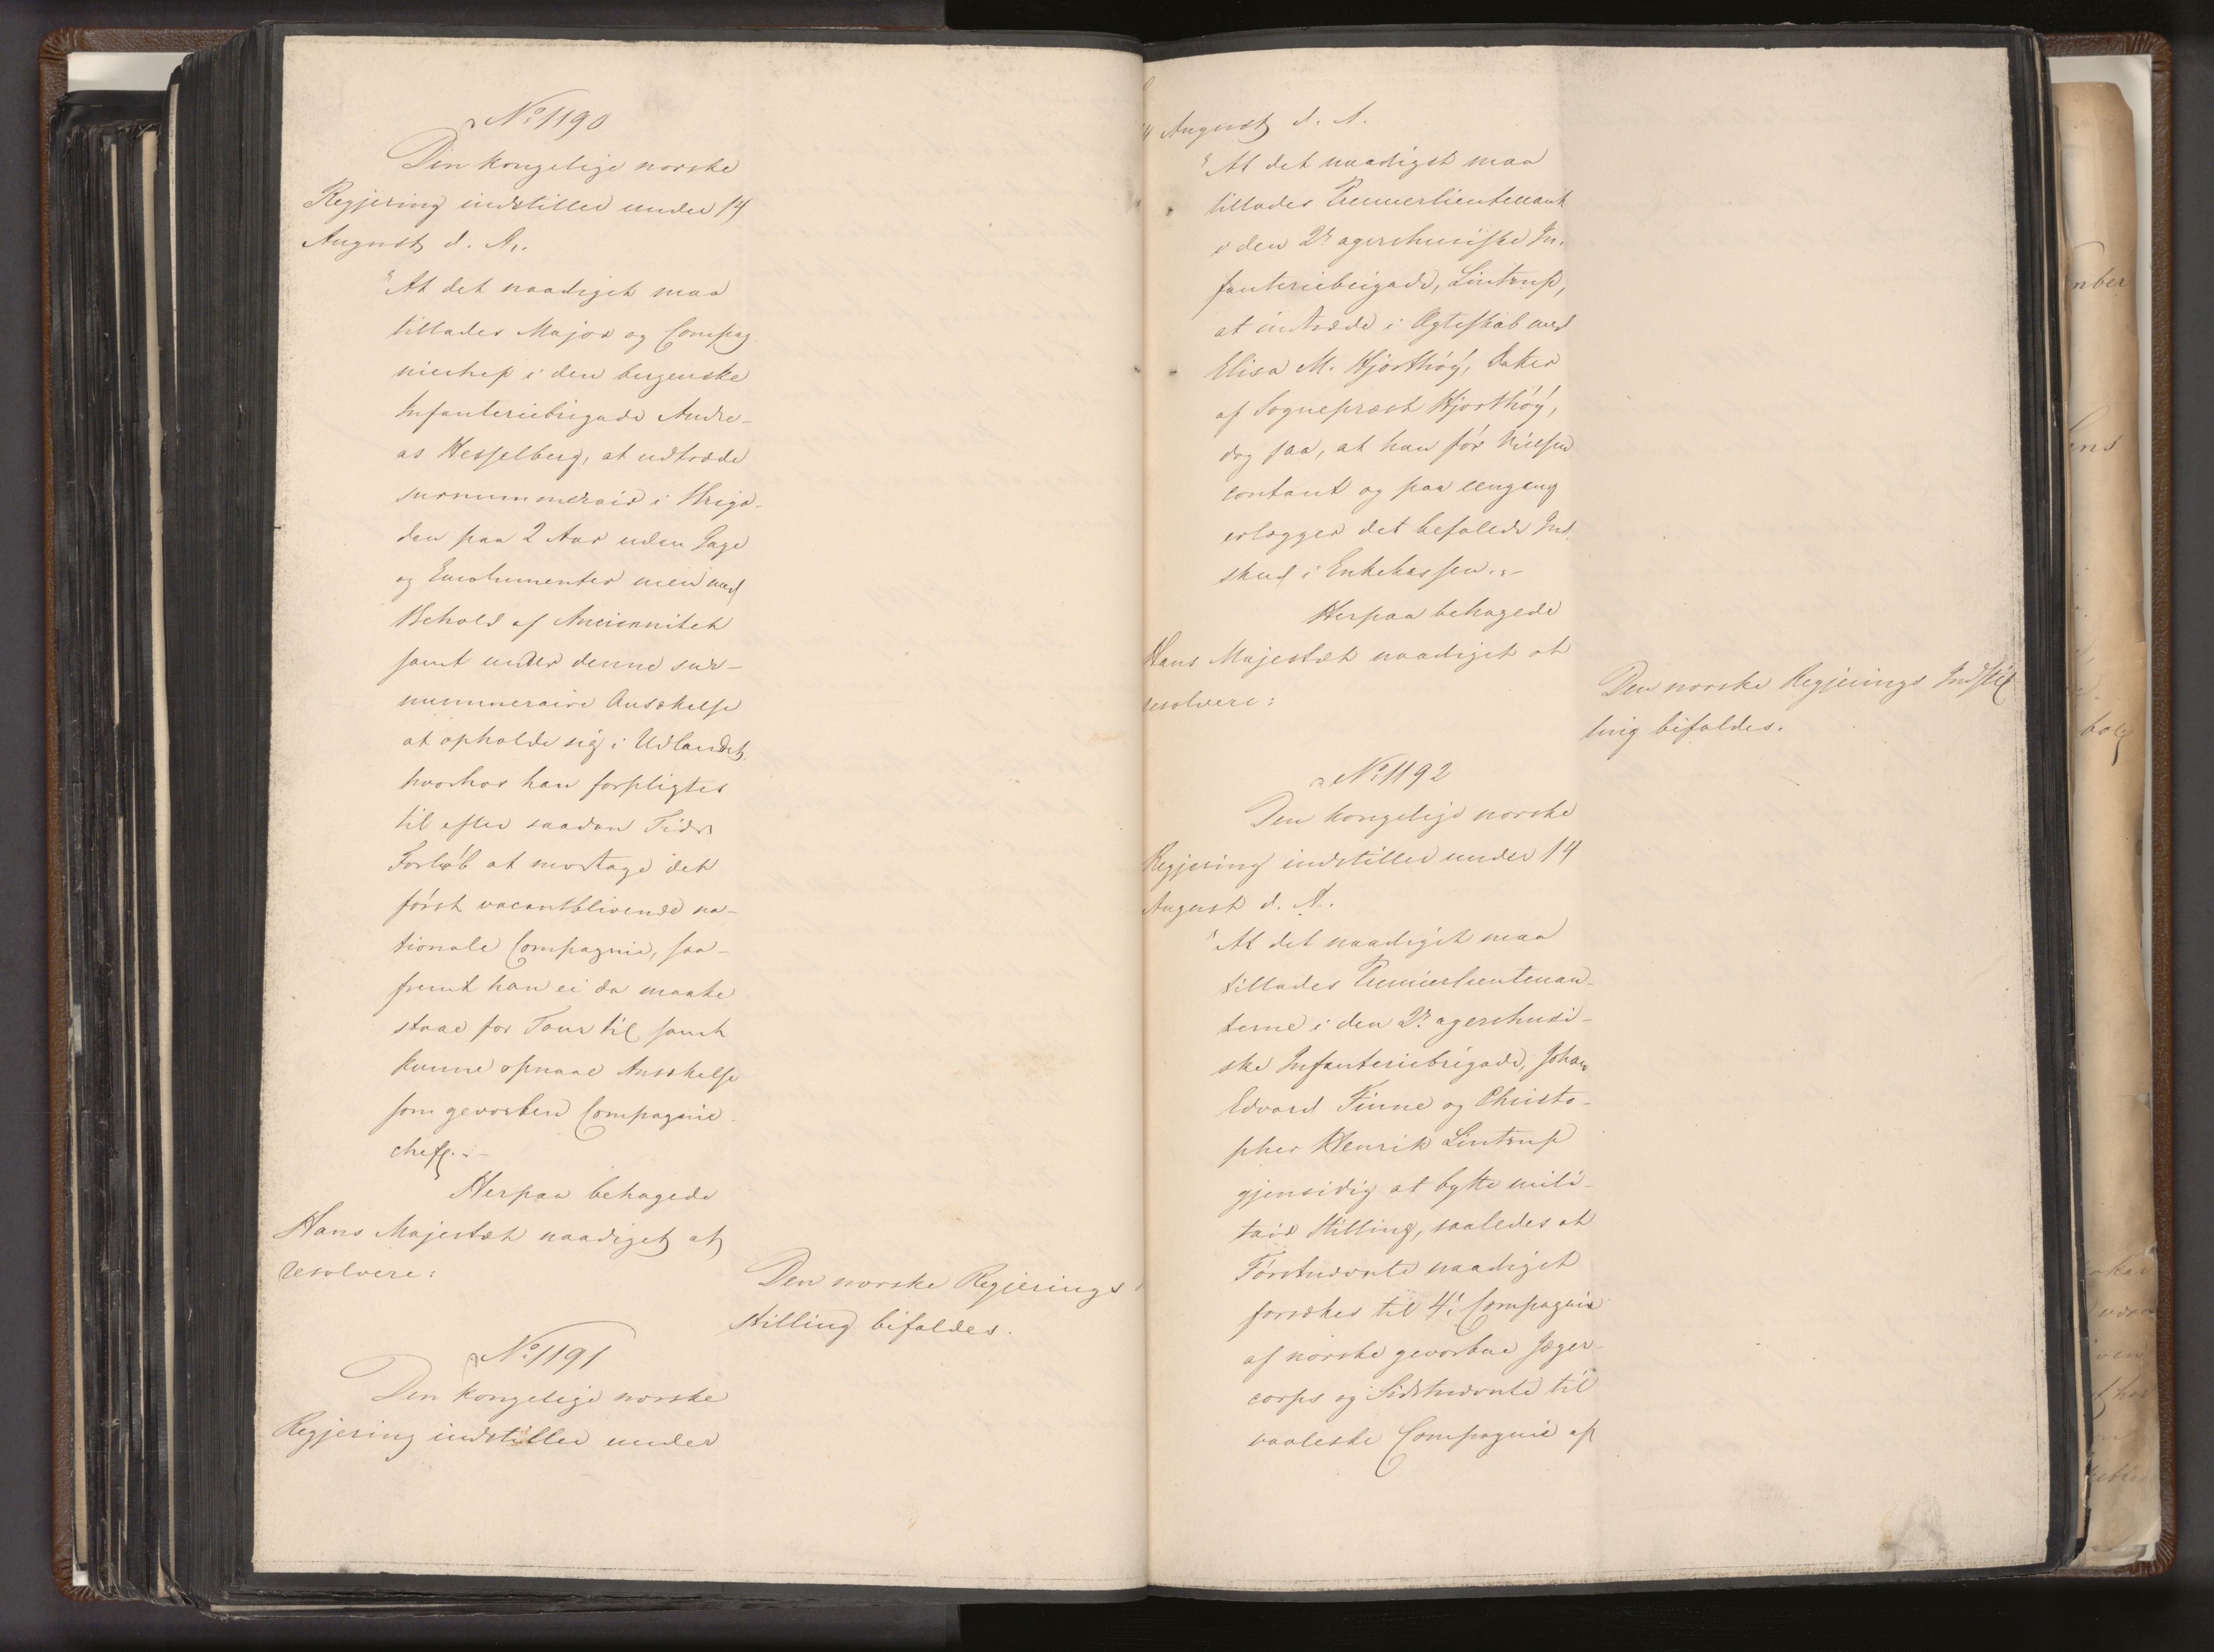 No 1190
Den kongelige norske
Regjering indstiller under 14
August d. A.
"At det naadigst maa
tillades Major og Compag
niechef i den bergenske
Infanteriebrigade Andre-
as Hesselberg, at udtræde
surnummerair i Briga-
den paa 2 Aar uden Gage
og Emolumenter men med
Behold af Anciennitet
samt under denne sur-
nummeraire Ansættelse
at opholde sig i Udlandet,
hvorhos han forpligtes
til efter saadan Tids
Forløb at modtage det
først vacantblivende na-
tionale Compagnie, saa-
fremt han ei da maatte
staae for Tour til samt
kunne opnaae Ansættelse
som gevorben Compagnie-
chef."-
Herpaa behagede
Hans Majestæt naadigst at
resolvere:
Den norske Regjerings
stilling bifaldes.
No 1191
Den kongelige norske
Regjering indstiller under
14 August d. A.
"At det naadigst maa
tillades Premierlieutenant
i den 2den agershusiske In-
fanteriebrigade, Lintrup,
at indtræde i Ægteskab med
Elisa M. Hjorthøy, Datter
af Sognepræst Hjorthøy,
dog saa, at han før Vielsen
contant og paa eengang
erlægger det befalede Ind
skud i Enkekassen."-
Herpaa behagede
Hans Majestæt naadigst at
resolvere:
Den norske Regjerings Indstil
ling bifaldes.
No 1192
Den kongelige norske
Regjering indstiller under 14
August d. A.
"At det naadigst maa
tillades Premierlieutenan-
terne i den 2den agershusi-
ske Infanteriebrigade, Johan
Edvard Finne og Christo-
pher Henrik Lintrup
gjensidig at bytte mili-
tair Stilling, saaledes at
Førstnævnte naadigst
forsættes til 4de Compagnie
af norske gevorbne Jæger-
corps og Sidstnævnte til
vaalerske Compagnie af